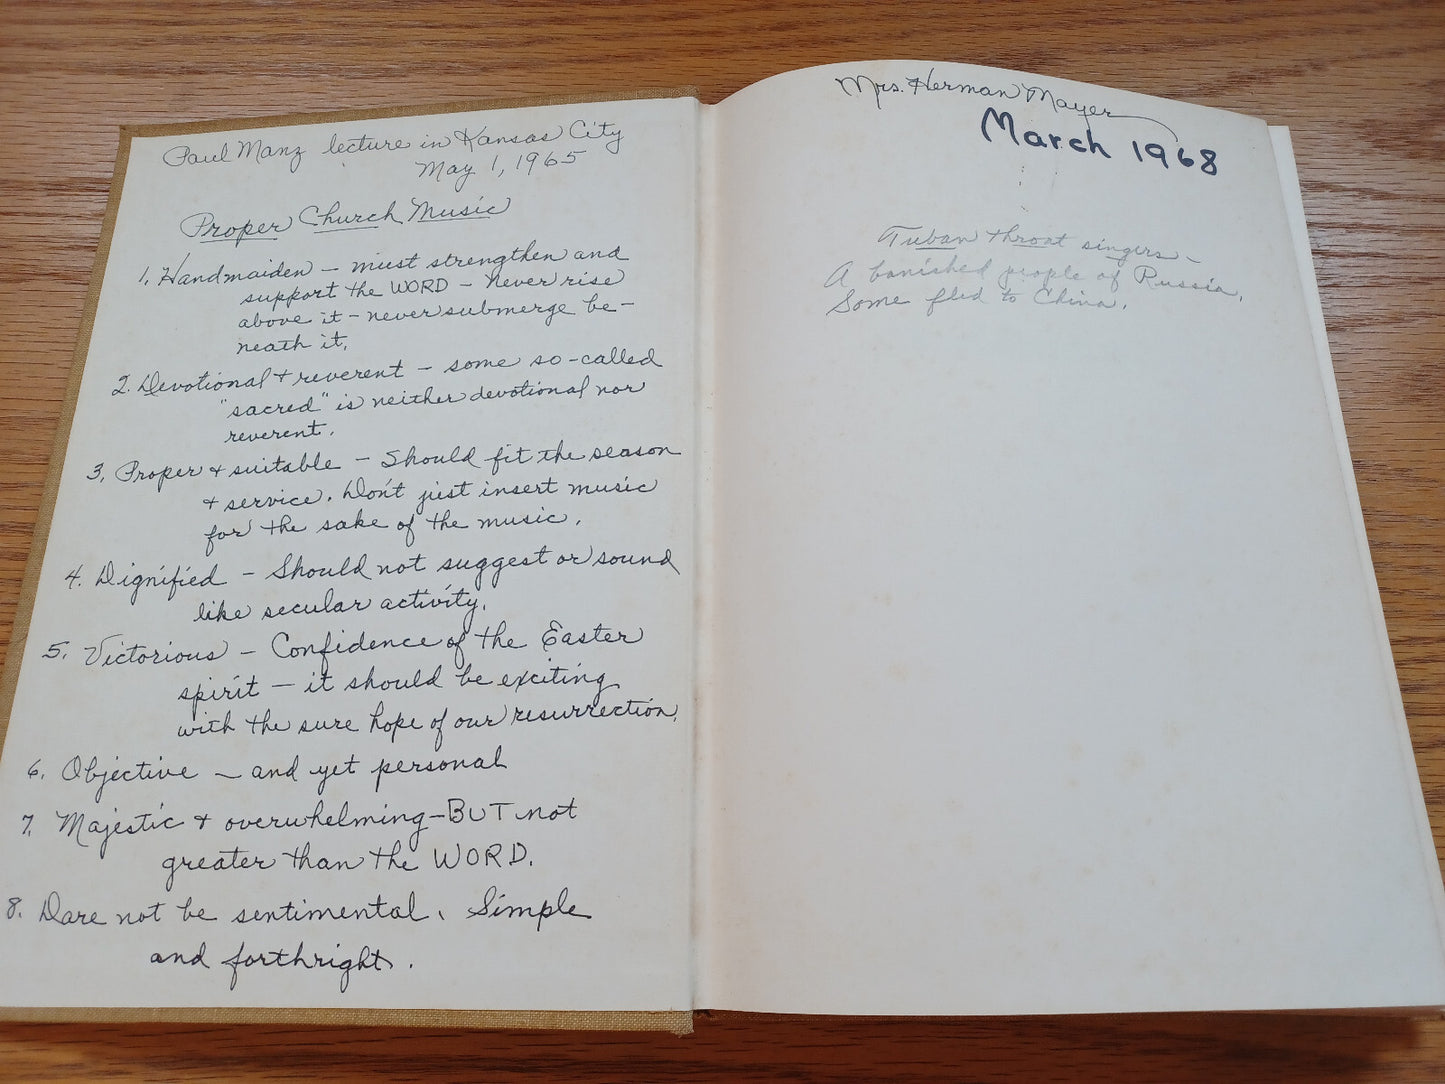 Paul Manz lecture in Kansas City
May 1, 1965
Proper Church Music
1. Handmaiden – must strengthen and
support the WORD – Never rise
above it – never submerge be-
neath it.
2. Devotional + reverent – some so-called
"sacred" is neither devotional nor
reverent.
3. Proper + suitable – Should fit the season
+ service. Don't just insert music
for the sake of the music.
4. Dignified – Should not suggest or sound
like secular activity.
5. Victorious – Confidence of the Easter
spirit – it should be exciting
with the sure hope of our resurrection.
6. Objective – and yet personal
7. Majestic + overwhelming – BUT not
greater than the WORD.
8. Dare not be sentimental. Simple
and forthright.
Mrs. Herman Mayer
March 1968
Tuban throat singers –
A banished people of Russia.
Some fled to China.